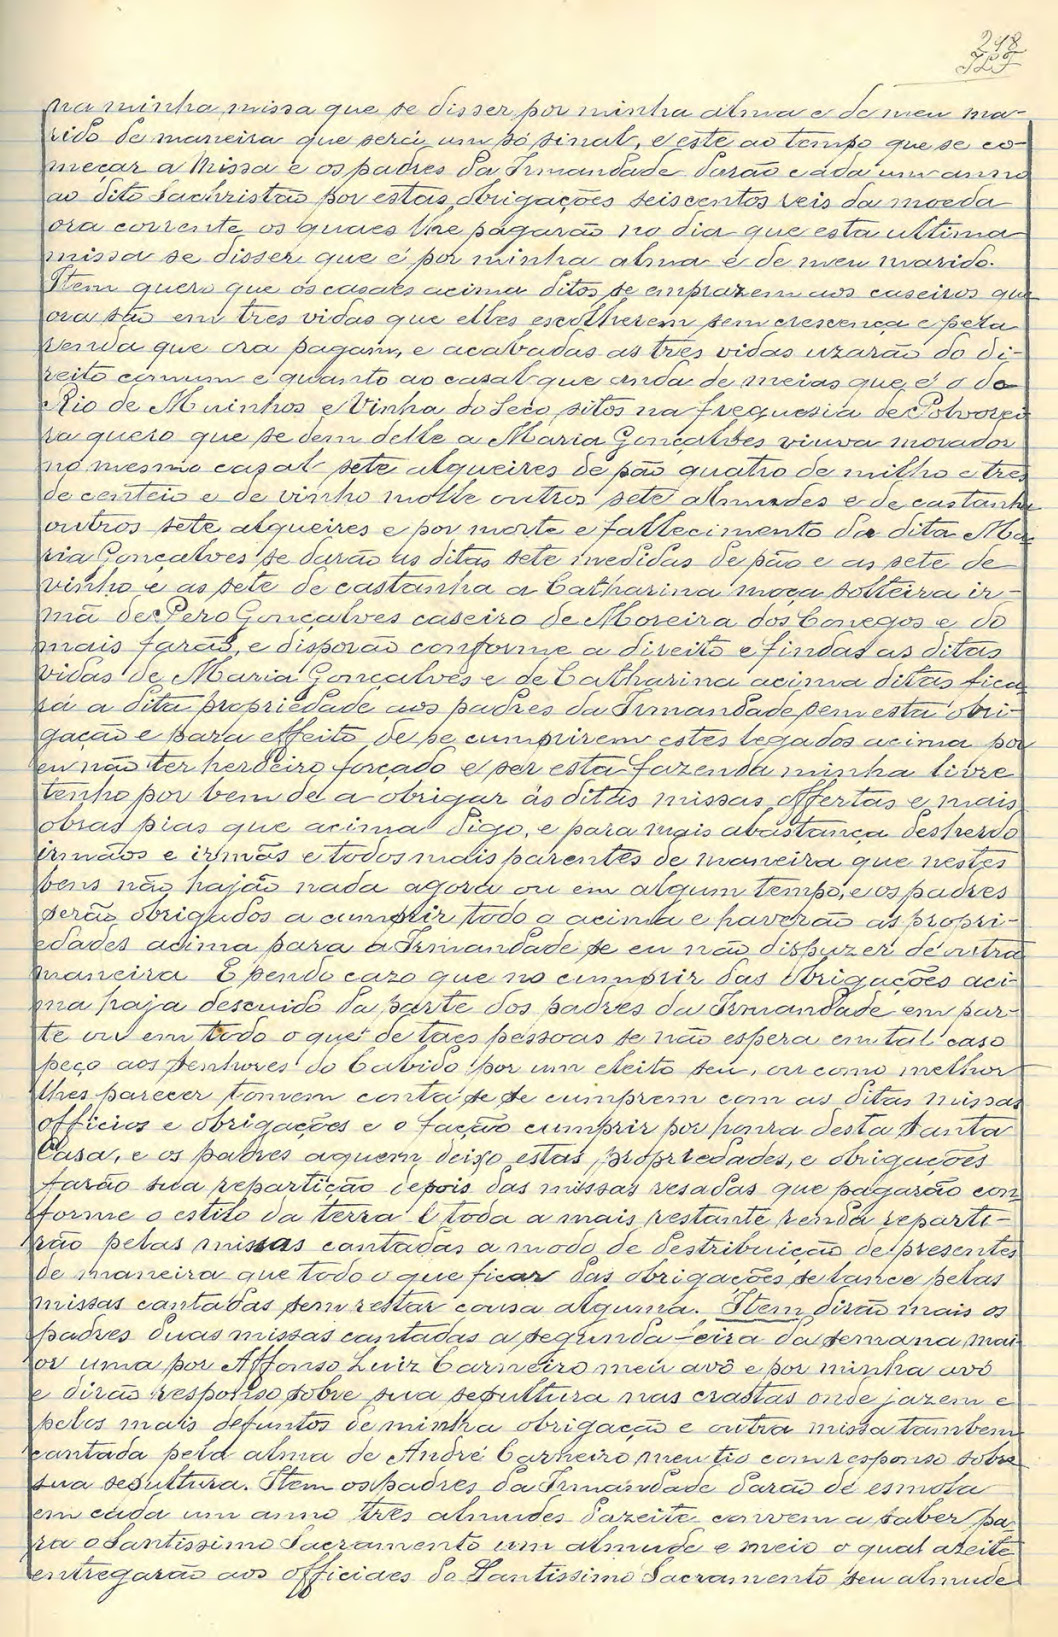 298
na minha missa que se disser por minha alma e de meu ma-
rido de maneira que será um só sinal, e este ao tempo que se co-
meçar a Missa e os padres da Irmandade darão cada um anno
ao dito Sachristão por estas obrigações seiscentos reis da moeda
ora corrente os quaes lhe pagarão no dia que esta ultima
missa se disser que é por minha alma e de meu marido.
Item quero que os casaes acima ditos se emprazem aos caseiros que
ora são em tres vidas que elles escolherem sem crescença e pela
renda que ora pagam, e acabadas as tres vidas uzarão do di-
reito comum e quanto ao casal que anda de meias que é o do
Rio de Muinhos e Vinha do Seco sitos na freguesia de Polvorei
ra quero que se dem delle a Maria Gonçalves viuva morador
no mesmo cazal sete alqueires de pão quatro de milho e tres
de centeio e de vinho molle outros sete almudes e de castanha
outros sete alqueires e por morte e fallecimento da dita Ma
ria Gonçalves se darão as ditas sete medidas de pão e as sete de
vinho e as sete de castanha a Catharina moça solteira ir-
mã de Pero Gonçalves caseiro de Moreira dos Conegos e do
mais farão, e disporão conforme a direito e findas as ditas
vidas de Maria Gonçalves e de Catharina acima ditas fica
rá a dita propriedade aos padres da Irmandade sem esta obri-
gação e para effeito de se cumprirem estes legados acima por
eu não ter herdeiro forçado e ser esta fazenda minha livre
tenho por bem de a obrigar ás ditas missas offertas e mais
obras pias que acima digo, e para mais abastança desherdo
irmãos e irmãs e todos mais parentes de maneira que nestes
bens não hajão nada agora ou em algum tempo, e os padres
serão obrigados a cumprir todo o acima e haverão as propri-
edades acima para a Irmandade se eu não dispuzer de outra
maneira E sendo cazo que no cumprir das obrigações aci-
ma haja descuido da parte dos padres da Irmandade em par-
te ou em todo o que de taes pessoas se não espera em tal caso
peço aos senhores do Cabido por um eleito seu, ou como melhor
lhes parecer tomem conta se se cumprem com as ditas missas
officios e obrigações e o fação cumprir por honra desta Santa
Casa, e os padres a quem deixo estas propriedades, e obrigações
farão sua repartição depois das missas resadas que pagarão con
forme o estilo da terra e toda a mais restante renda reparti-
rão pelas missas cantadas a modo de destribuição de presentes
de maneira que todo o que ficar das obrigações se lance pelas
missas cantadas sem restar cousa alguma. Item dirão mais os
padres duas missas cantadas a segunda-feira da semana mai
or uma por Affonso Luiz Carneiro meu avô e por minha avó
e dirão responso sobre sua sepultura nas crastas onde jazem e
pelos mais defuntos de minha obrigação e outra missa tambem
cantada pela alma de André Carneiro meu tio com responso sobre
sua sepultura. Item os padres da Irmandade darão de esmola
em cada um anno tres almudes d'azeite convem a saber pa
ra o Santissimo Sacramento um almude e meio o qual azeite
entregarão aos officiaes do Santissimo Sacramento seu almude